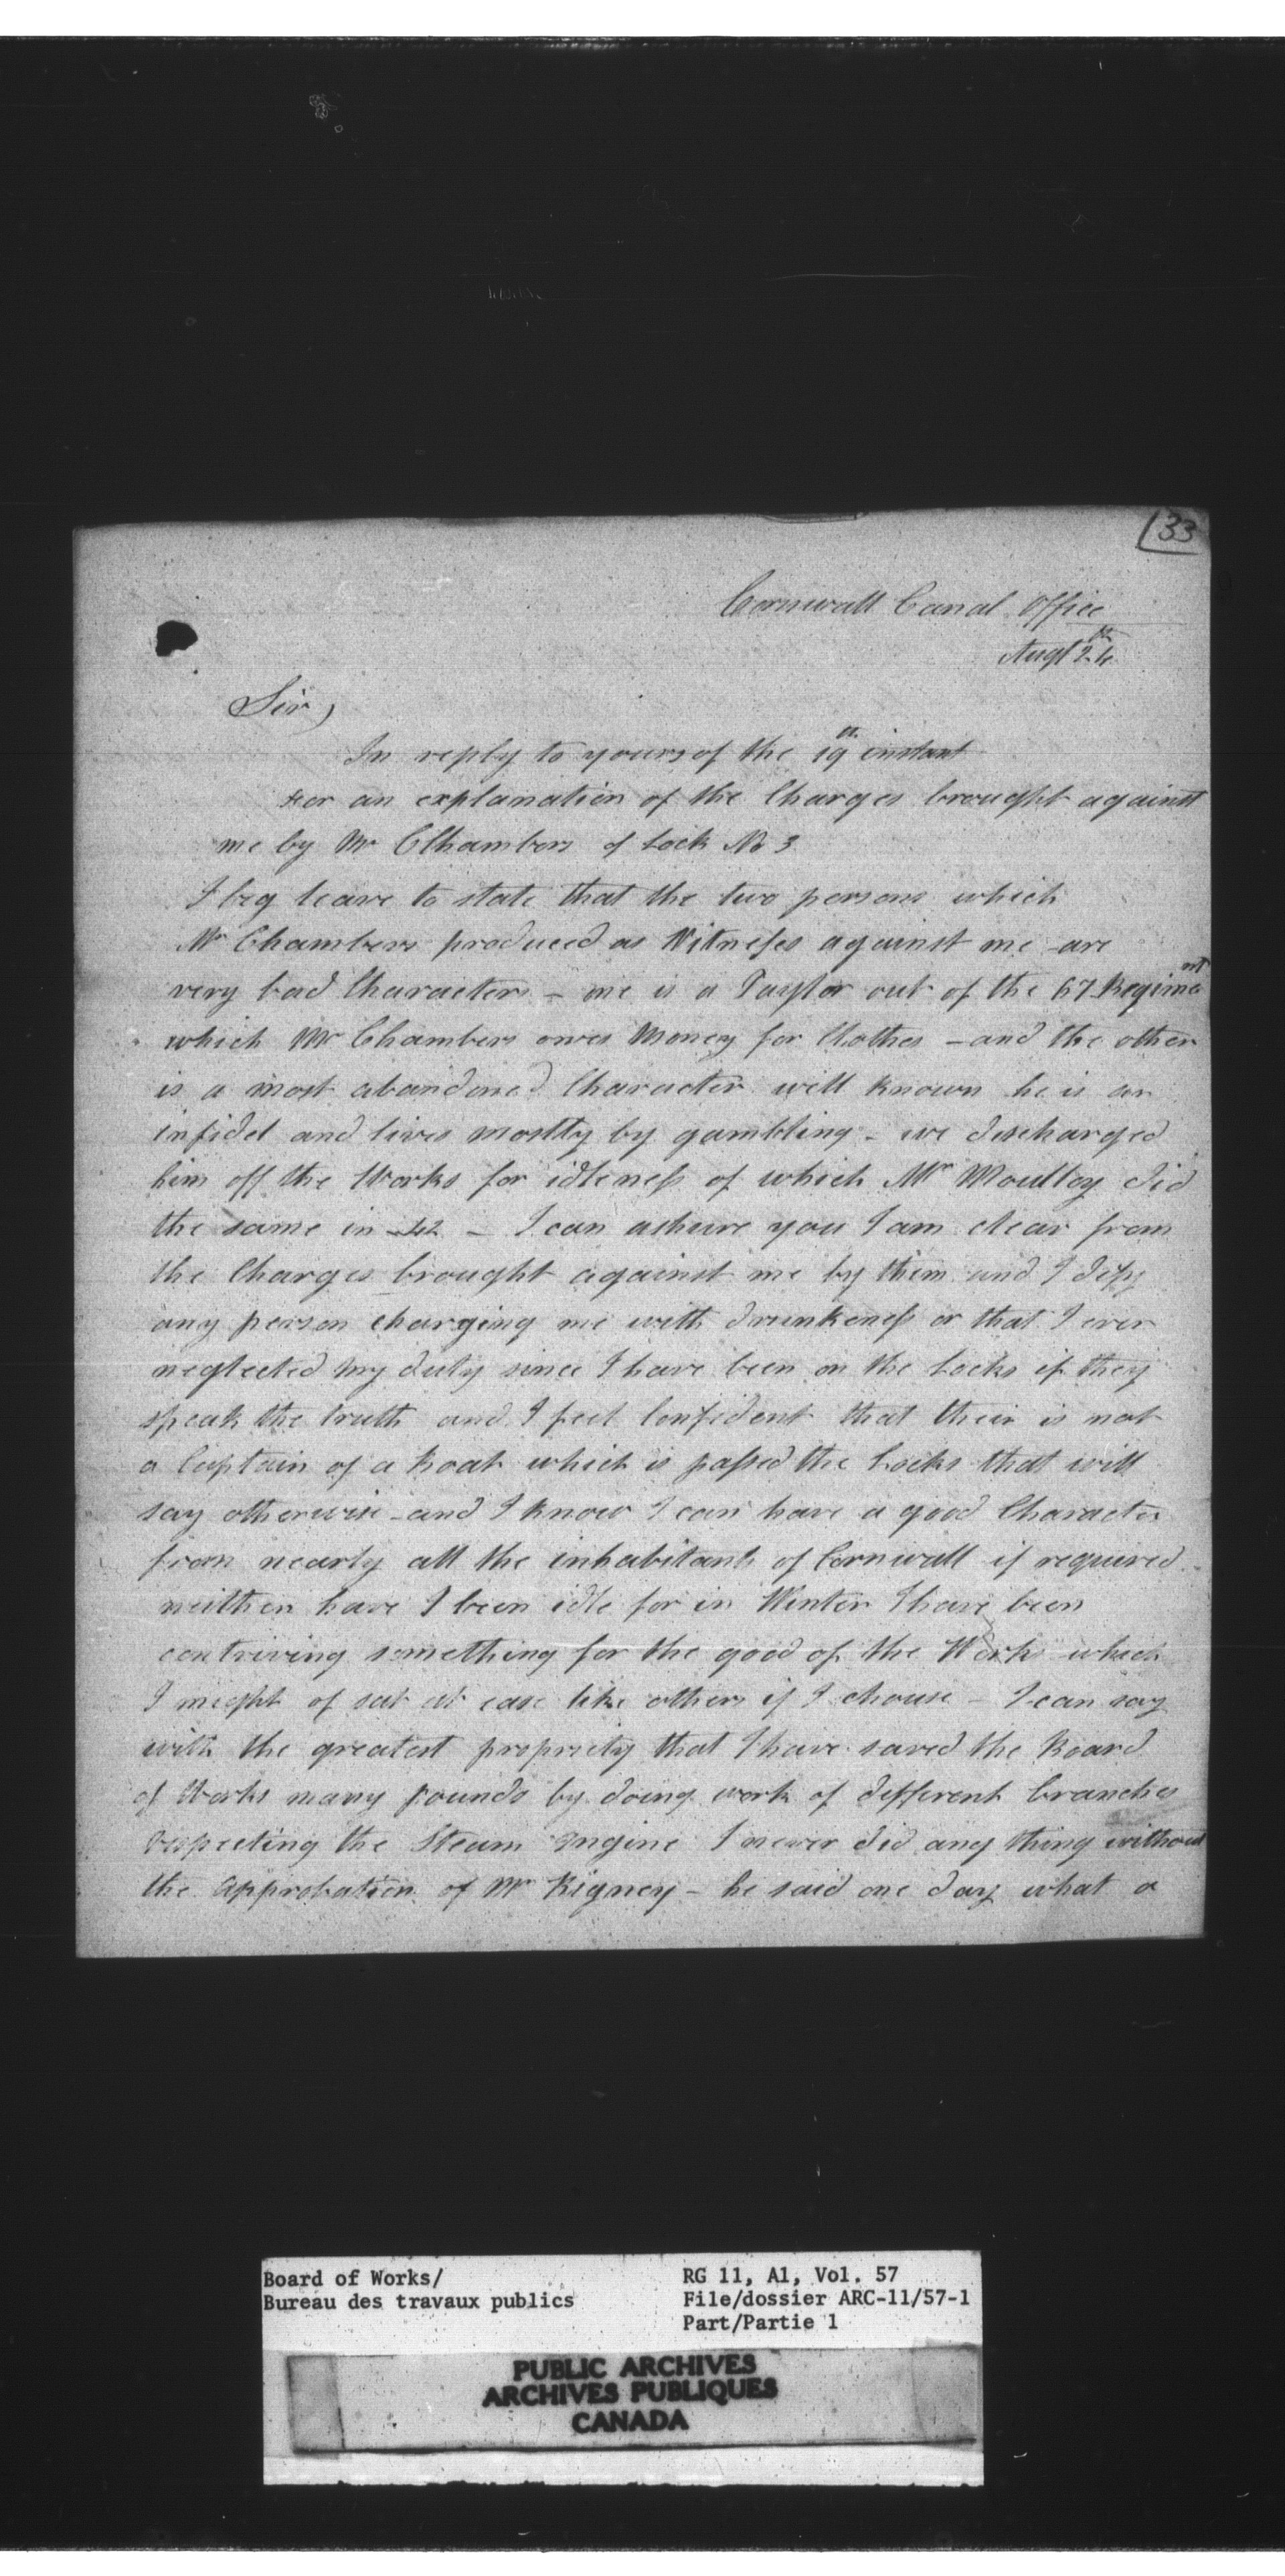 33
Cornwall Canal Office
Augt 24th
Sir,
In reply to yours of the 19th instant
For an explanation of the Charges brought against
me by Mr Clhambers of Lock No 3
I beg leave to state that the two persons which
Mr Chambers produced as Witnesses against me are
very bad Characters - one is a Taylor out of the 67 Regiment
which Mr Chambers owes Money for Clothes - and the other
is a most abandoned Character well known he is an
infidel and lives mostly by gambling - we descharged
him off the Works for idleness of which Mr Moulloy did
the same in 42 - I can ashure you I am clear from
the Charges brought against me by them and I defy
any person charging me with drunkeness or that I ever
neglected my duty since I have been on the Locks if they
speak the truth and I feel Confident that their is not
a Captain of a Boat which is passed the Locks that will
say otherwise - and I know I can have a good Character
from nearly all the inhabitants of Cornwall if required
neither have I been idle for in Winter I have been
contriving something for the good of the Work which
I might of sat at ease like others if I chouse - I can say
with the greatest propriety that I have saved the Board
of Works many pounds by doing work of different branches
respecting the Steam Engine I never did any thing without
the approbation of Mr Rigney - he said one day what a
Board of Works/
Bureau des travaux publics
RG 11, A1, Vol. 57
File/dossier ARC-11/57-1
Part/Partie 1
PUBLIC ARCHIVES
ARCHIVES PUBLIQUES
CANADA